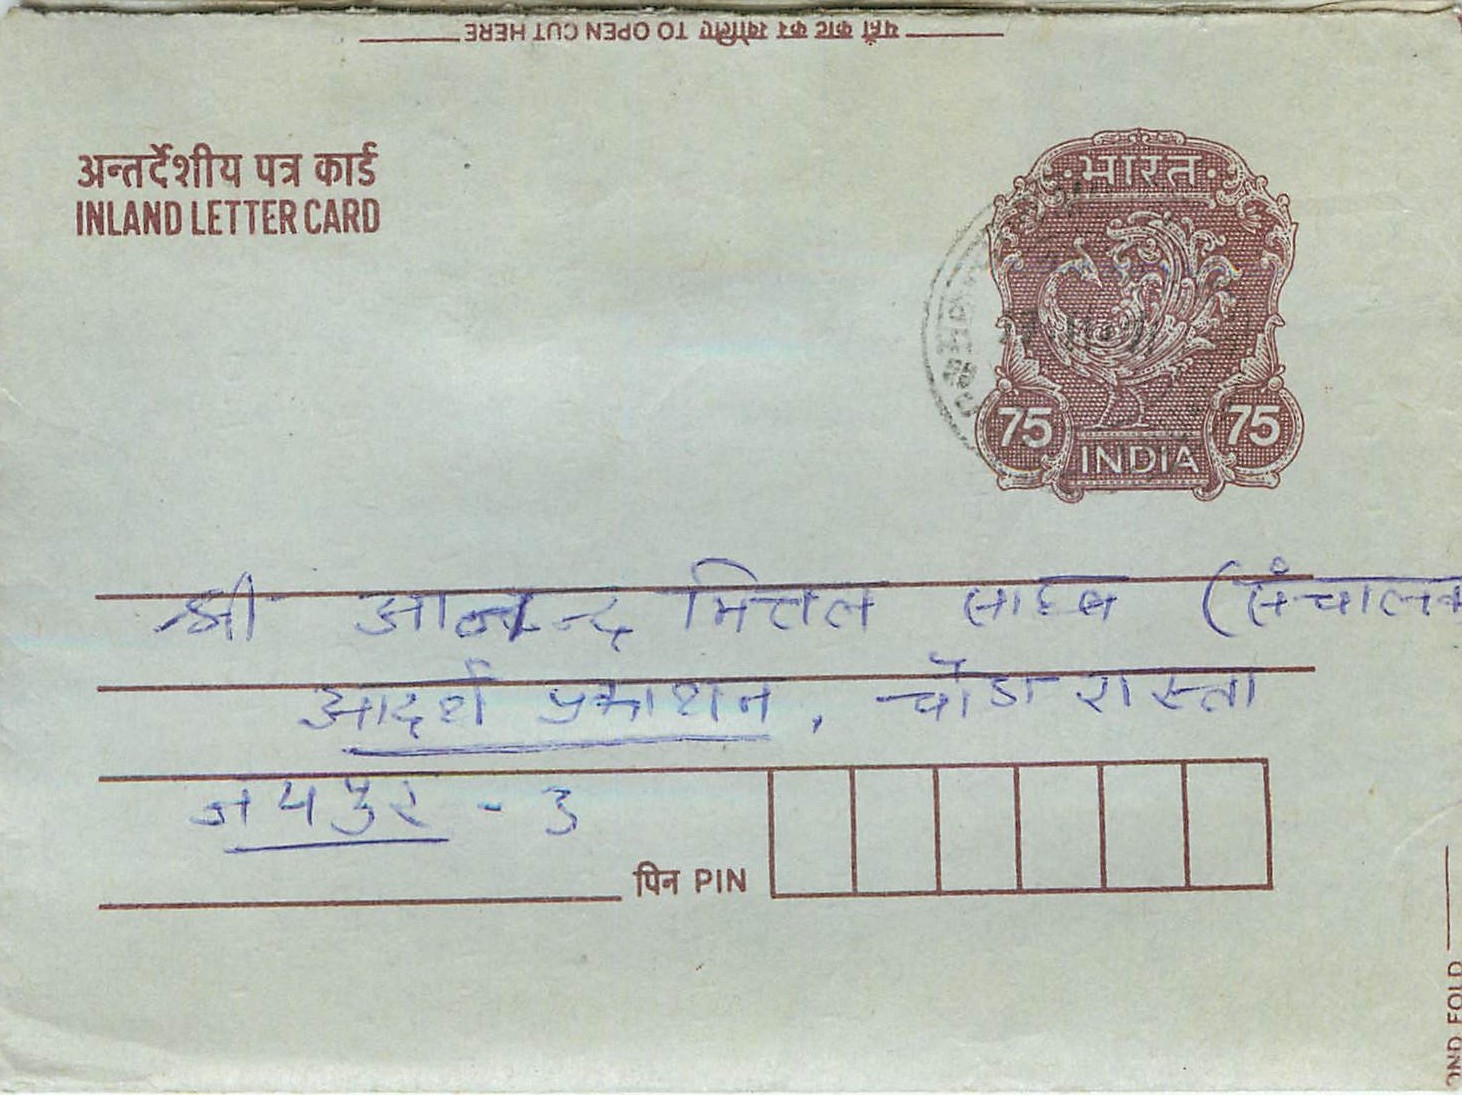 यहाँ काट कर खोलिए TO OPEN CUT HERE
अन्तर्देशीय पत्र कार्ड
INLAND LETTER CARD
भारत
75 75
INDIA
श्री आनन्द मित्तल साहब (संचालक
आदर्श प्रकाशन, चौडा रास्ता
जयपुर - 3
पिन PIN
OND FOLD